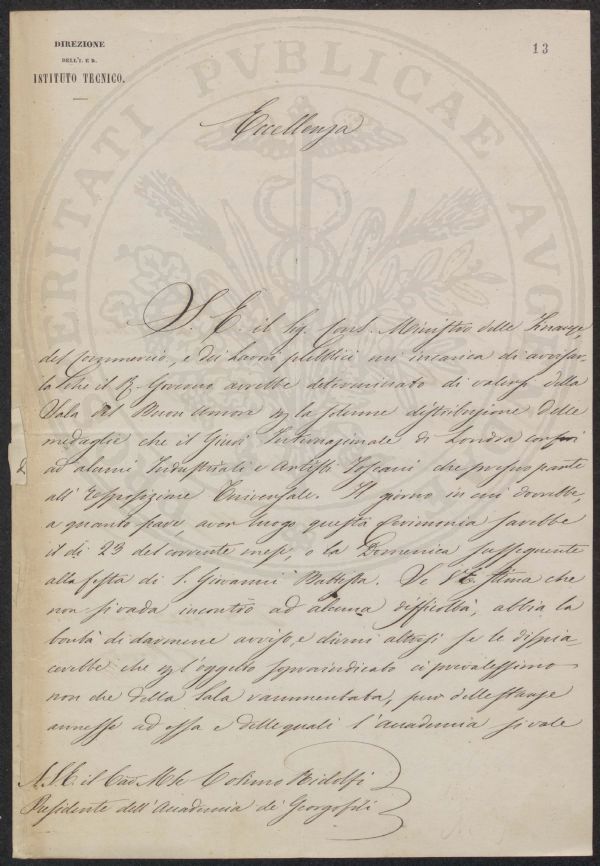 DIREZIONE
DELL'I. E R.
ISTITUTO TECNICO.
13
Eccellenza
S. E. il Sig. Cons. Ministro delle Finanze,
del Commercio, e dei Lavori pubblici mi incarica di avvisar-
la che il R. Governo avrebbe determinato di valersi della
Sala del Buon Umore per la solenne distribuzione delle
medaglie che il Giurì Internazionale di Londra conferì
ad alcuni Industriali e Artisti Toscani che preser parte
all'Esposizione Universale. Il giorno in cui dovrebbe,
a quanto pare aver luogo questa Cerimonia sarebbe
il dì 23 del corrente mese, o la Domenica susseguente
alla festa di S. Giovanni Battista. Se V. E. stima che
non si vada incontro ad alcuna difficoltà, abbia la
bontà di darmene avviso, e dirmi altresì se le dispia-
cerebbe che per l'oggetto sopraindicato ci prevalessimo
non che della Sala rammentata, pur delle stanze
annesse ad essa e delle quali l'Accademia si vale
A S. E. il Cav. Mse Cosimo Ridolfi
Presidente dell'Accademia de' Georgofili
PROSPERITATI PVBLICAE AVGENDAE